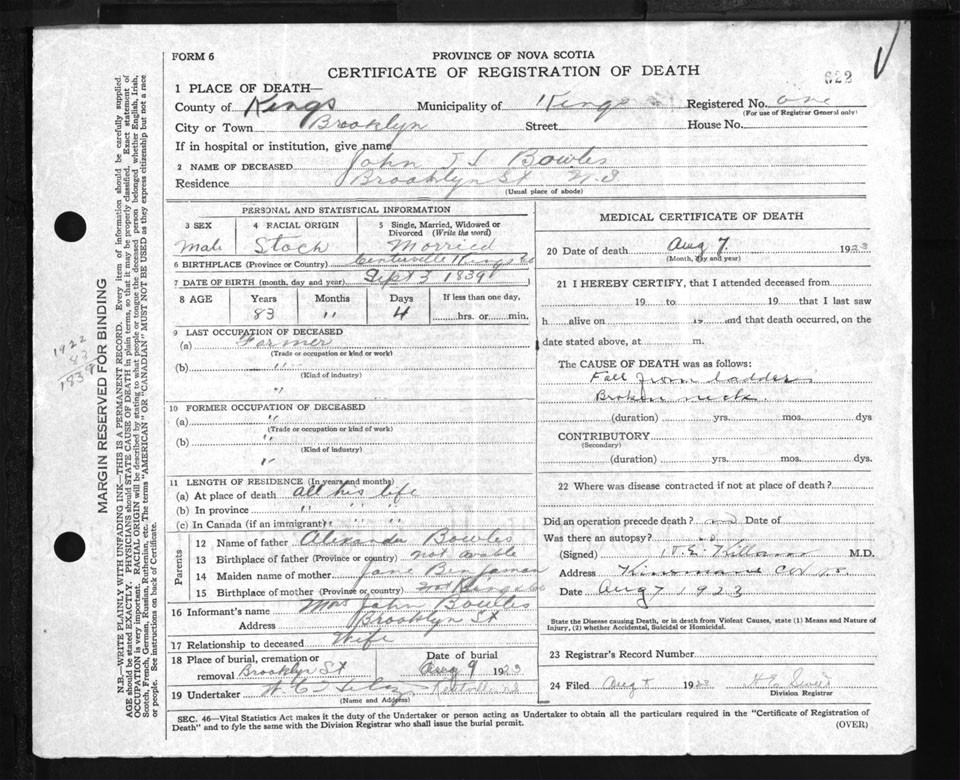 FORM 6
PROVINCE OF NOVA SCOTIA
CERTIFICATE OF REGISTRATION OF DEATH
622
1 PLACE OF DEATH—
County of Kings Municipality of Kings Registered No. one
(For use of Registrar General only)
City or Town Brooklyn Street House No.
If in hospital or institution, give name
2 NAME OF DECEASED John Bowles
Residence Brooklyn St N.S
(Usual place of abode)
PERSONAL AND STATISTICAL INFORMATION
3 SEX 4 RACIAL ORIGIN 5 Single, Married, Widowed or Divorced (Write the word)
Male Morried
6 BIRTHPLACE (Province or Country) Centreville Kings Co
7 DATE OF BIRTH (month, day and year) Sept 3 1839
8 AGE Years Months Days If less than one day,
83 " 4 hrs. or min.
9 LAST OCCUPATION OF DECEASED
(a) Farmer
(Trade or occupation or kind or work)
(b) "
(Kind of industry)
"
10 FORMER OCCUPATION OF DECEASED
(a) "
(Trade or occupation or kind of work)
(b) "
(Kind of industry)
"
11 LENGTH OF RESIDENCE (In years and months)
(a) At place of death all his life
(b) In province " " "
(c) In Canada (if an immigrant) " " "
Parents
12 Name of father Alexander Bowles
13 Birthplace of father (Province or country) not avable
14 Maiden name of mother Jane Benjaman
15 Birthplace of mother (Province or country)
16 Informant's name Mrs John Bowles
Address Brooklyn St
17 Relationship to deceased Wife
18 Place of burial, cremation or removal Brooklyn St Date of burial Aug 9 1923
19 Undertaker
(Name and Address)
MEDICAL CERTIFICATE OF DEATH
20 Date of death Aug 7 1923
(Month, day and year)
21 I HEREBY CERTIFY, that I attended deceased from
19 to 19 that I last saw
h alive on 19 and that death occurred, on the
date stated above, at m.
The CAUSE OF DEATH was as follows:
Fall from ladder
Broken neck.
(duration) yrs. mos. dys
CONTRIBUTORY
(Secondary)
(duration) yrs. mos. dys.
22 Where was disease contracted if not at place of death?
Did an operation precede death? no Date of
Was there an autopsy? no
(Signed) M.D.
Address
Date Aug 7 1923
State the Disease causing Death, or in death from Violent Causes, state (1) Means and Nature of Injury, (2) whether Accidental, Suicidal or Homicidal.
23 Registrar's Record Number
24 Filed Aug 8 1923
Division Registrar
SEC. 46—Vital Statistics Act makes it the duty of the Undertaker or person acting as Undertaker to obtain all the particulars required in the "Certificate of Registration of
Death" and to fyle the same with the Division Registrar who shall issue the burial permit. (OVER)
MARGIN RESERVED FOR BINDING
N.B.—WRITE PLAINLY WITH UNFADING INK—THIS IS A PERMANENT RECORD. Every item of information should be carefully supplied.
AGE should be stated EXACTLY. PHYSICIANS should STATE CAUSE OF DEATH in plain terms, so that it may be properly classified. Exact statement of
OCCUPATION is very important. RACIAL ORIGIN will be described by stating to what people or tongue the deceased person belonged whether English, Irish,
Scotch, French, German, Russian, Ruthenian, etc. The terms "AMERICAN" OR "CANADIAN" MUST NOT BE USED as they express citizenship but not a race
or people. See instructions on back of Certificate.
1922
83
1839